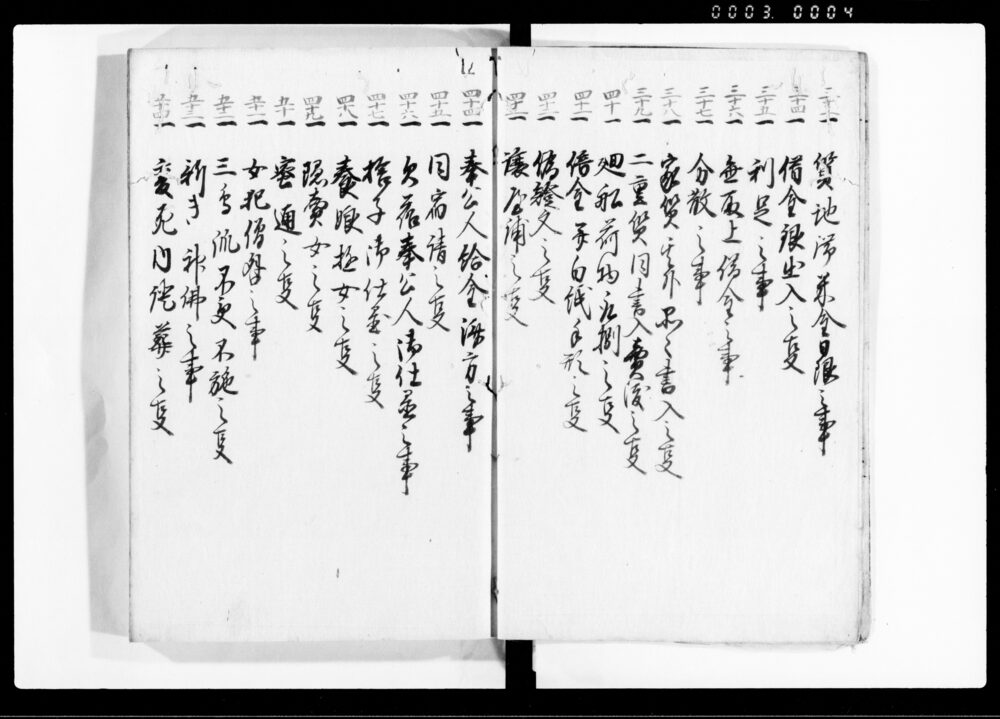 0003 0004
三十三一 質地滞米金日限之事
三十四一 借金銀出入之事
三十五一 利足之事
三十六一 無取上借金之事
三十七一 分散之事
三十八一 家質其外品々書入之事
三十九一 二重質同書入賣渡之事
四十一 廻船荷物出捌之事
四十一一 倍金并白紙手形之事
四十二一 偽證文之事
四十三一 譲屋鋪之事
四十四一 奉公人給金済方之事
四十五一 同宿請之事
四十六一 欠落奉公人御仕置之事
四十七一 捨子御仕置之事
四十八一 養娘遊女之事
四十九一 隠賣女之事
五十一 密通之事
五十一一 女犯僧祭之事
五十二一 三鳥派不受不施之事
五十三一 新き神佛之事
五十四一 変死内證葬之事